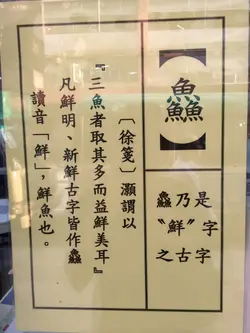 【鱻】
鱻乃是
〝鮮〞字
之古字
〔徐箋〕灝謂以
『三魚者取其多而益鮮美耳』
凡鮮明、新鮮古字皆作鱻
讀音「鮮」，鮮魚也。